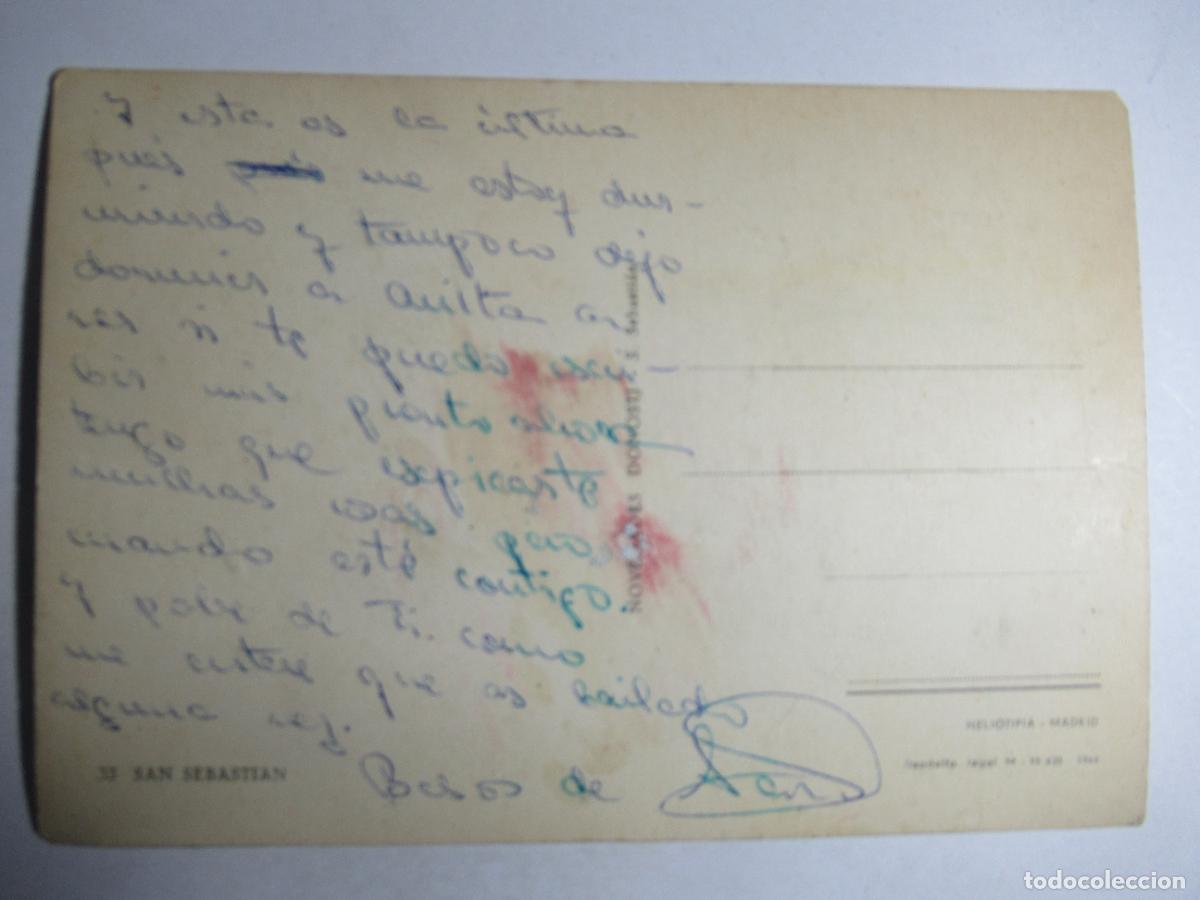 Y esta es la última
pués pués me estoy dur-
miendo y tampoco dejo
dormir a Anita a
ver si te puedo escri-
bir más pronto ahora
tengo que
mientras
cuando esté contigo.
Y pobre de Ti. como
me entere que as bailado
alguna vez.
Besos de
33 SAN SEBASTIAN
NOVEDADES DONOSTI - S. Sebastián
HELIOTIPIA - MADRID
Depósito legal M - 1964
todocoleccion